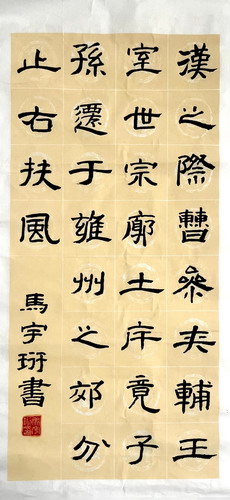 漢之際曹參夾輔王
室世宗廓土斥竟子
孫遷于雍州之郊分
止右扶風
馬宇書